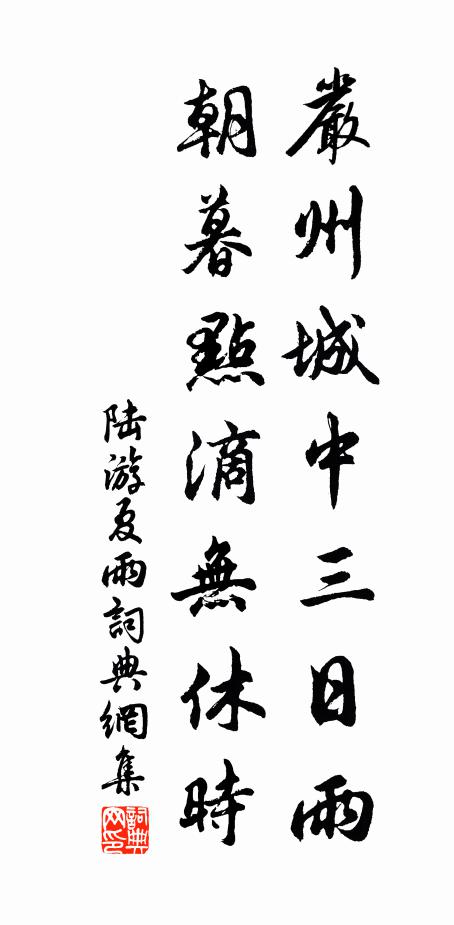 嚴州城中三日雨
朝暮點滴無休時
陆游夏雨詞典網集
詞典
网印